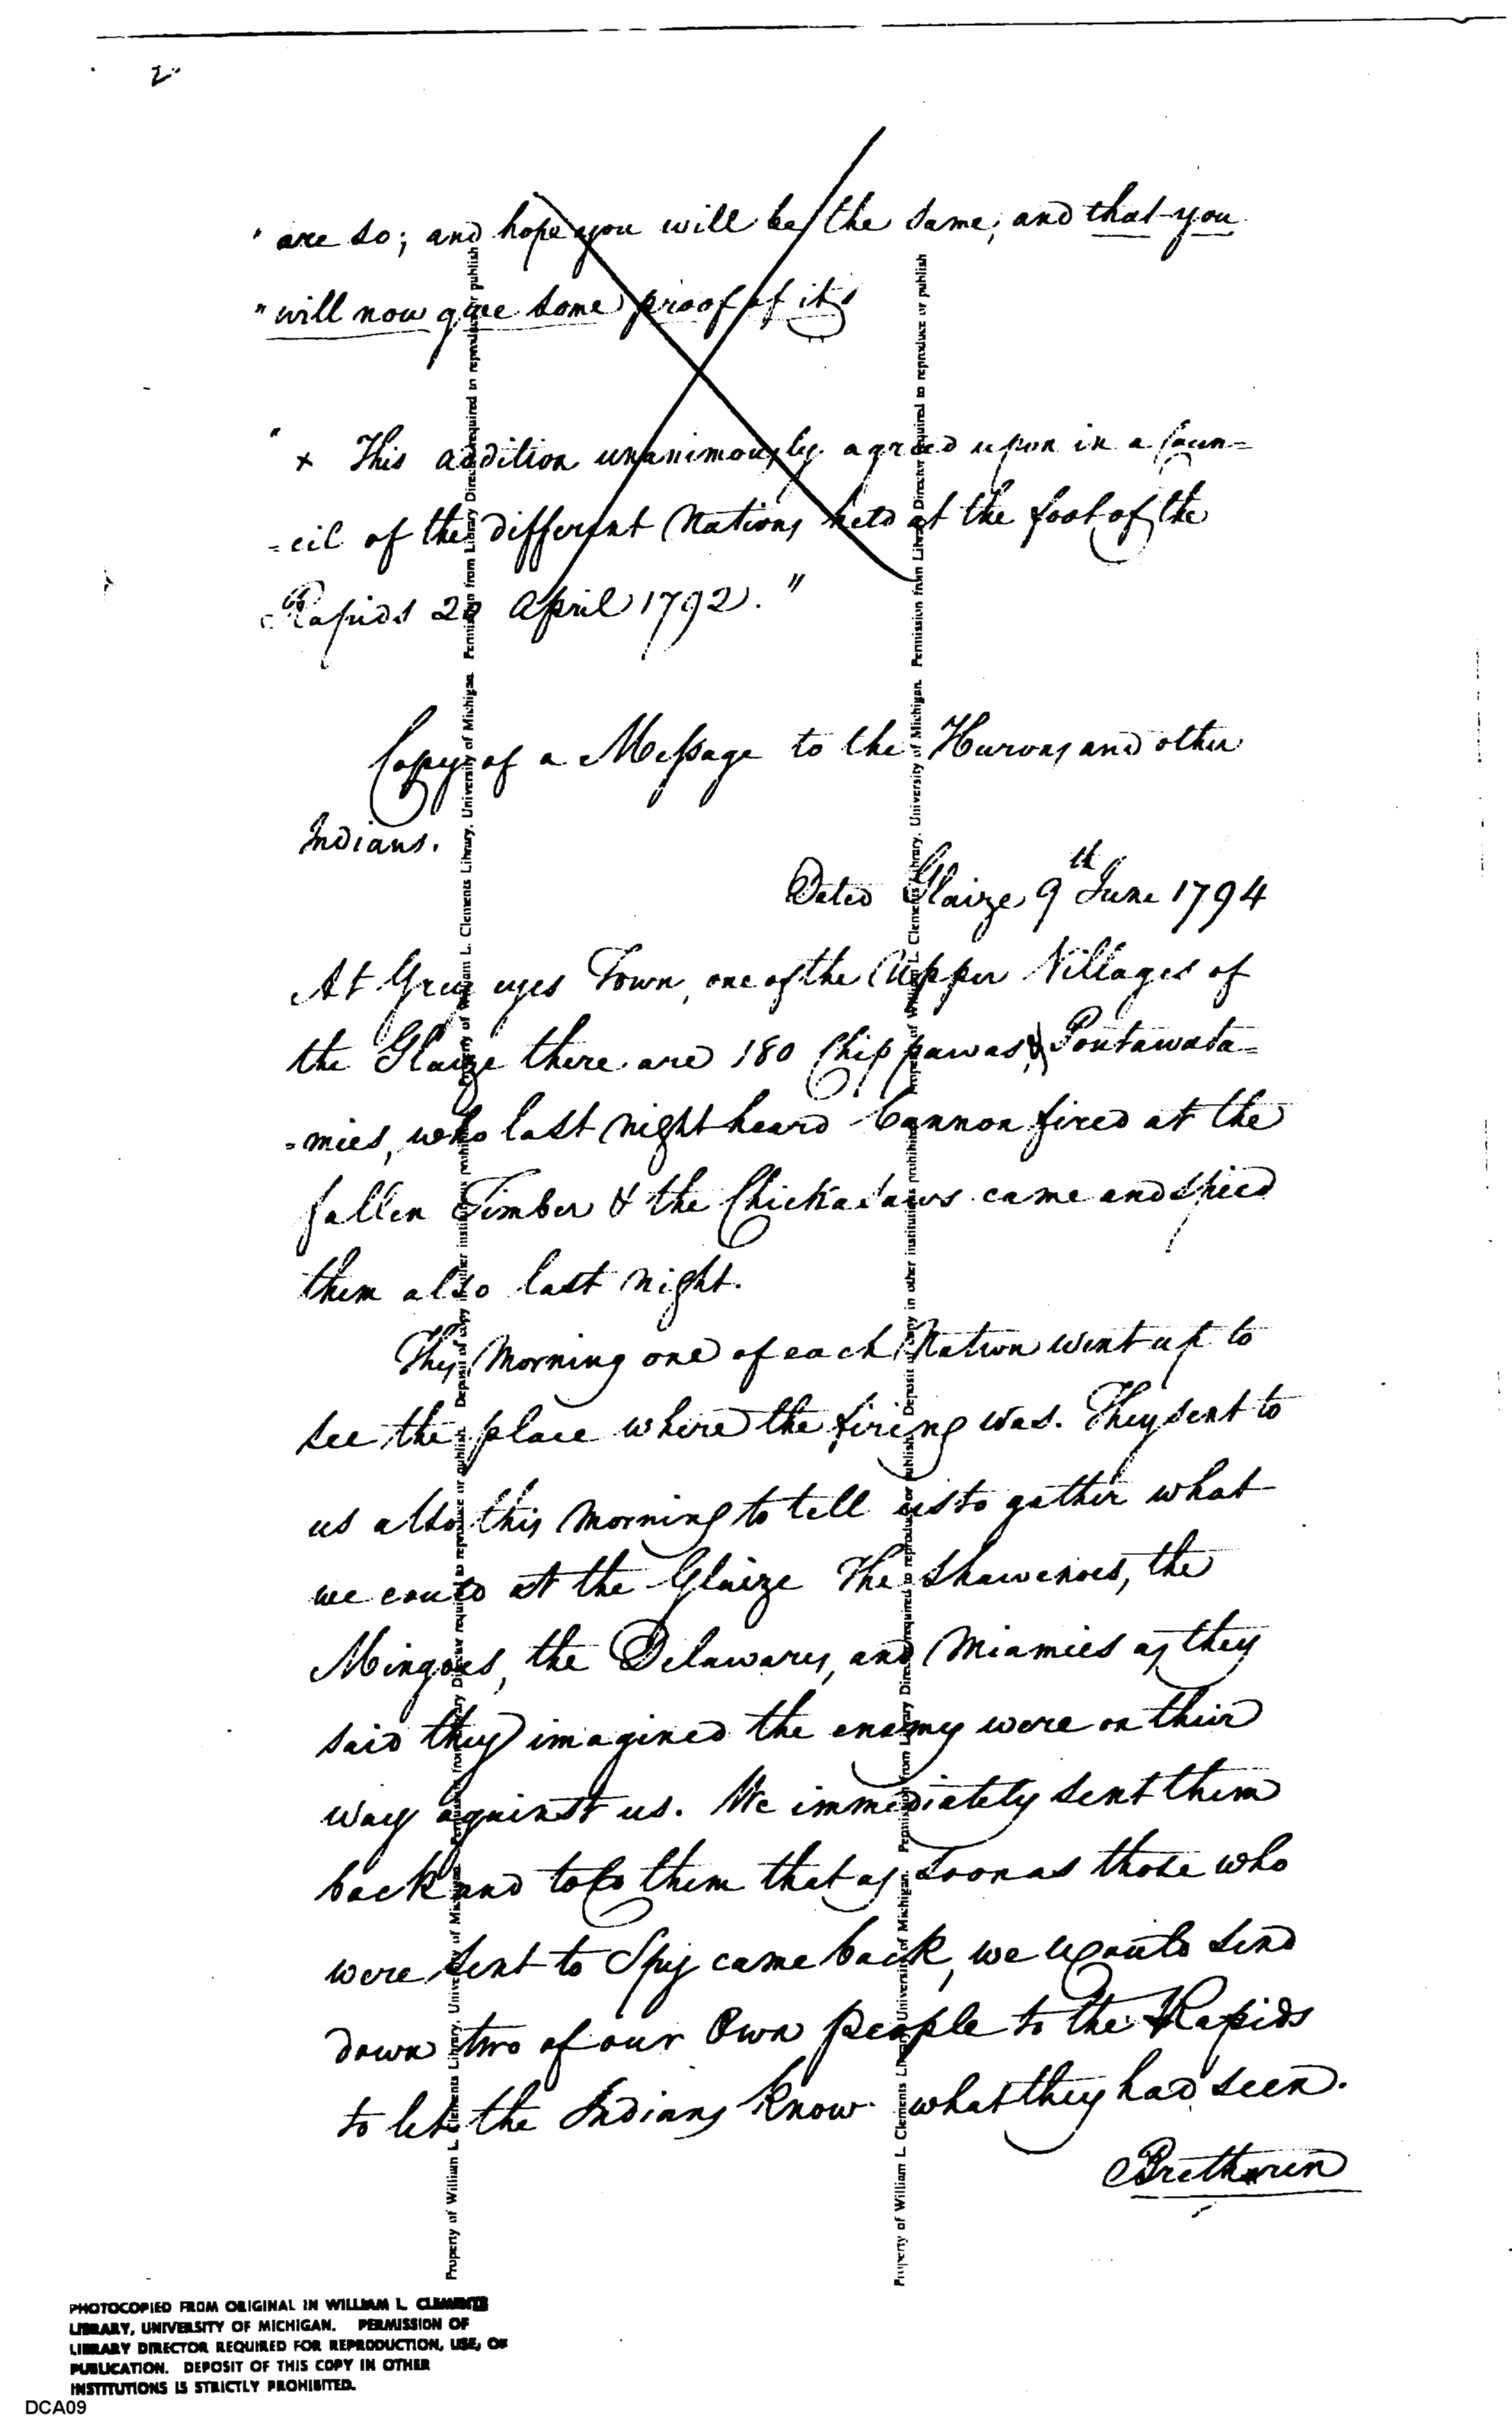 2
" are so; and hope you will be the same; and that you
" will now give some proof of it.
" x This addition unanimously agreed upon in a Coun=
=cil of the different Nations held at the foot of the
Rapids April 1792."
Copy of a Message to the Hurons and other
Indians.
Dated Glaize 9th June 1794
At Grey eyes Town, one of the Upper Villages of
the Glaize there are 180 Chippawas & Poutawata=
=mies, who last night heard Cannon fired at the
fallen Timber & the Chickasaws came and spied
them also last night.
This Morning one of each Nation went up to
see the place where the firing was. They sent to
us also this Morning to tell us to gather what
we could at the Glaize The Shawenoes, the
Mingoes, the Delawares, and Miamies as they
said they imagined the enemy were on their
way against us. We immediately sent them
back and told them that as soon as those who
were sent to Spy came back, we would send
down two of our Own people to the Rapids
to let the Indians know what they had seen.
Brethren
Property of William L. Clements Library, University of Michigan. Permission from Library Director required to reproduce or publish. Deposit of copy in other institutions prohibited.
Property of William L. Clements Library, University of Michigan. Permission from Library Director required to reproduce or publish
Property of William L. Clements Library, University of Michigan. Permission from Library Director required to reproduce or publish. Deposit of copy in other institutions prohibited.
Property of William L. Clements Library, University of Michigan. Permission from Library Director required to reproduce or publish
PHOTOCOPIED FROM ORIGINAL IN WILLIAM L. CLEMENTS
LIBRARY, UNIVERSITY OF MICHIGAN. PERMISSION OF
LIBRARY DIRECTOR REQUIRED FOR REPRODUCTION, USE, OR
PUBLICATION. DEPOSIT OF THIS COPY IN OTHER
INSTITUTIONS IS STRICTLY PROHIBITED.
DCA09